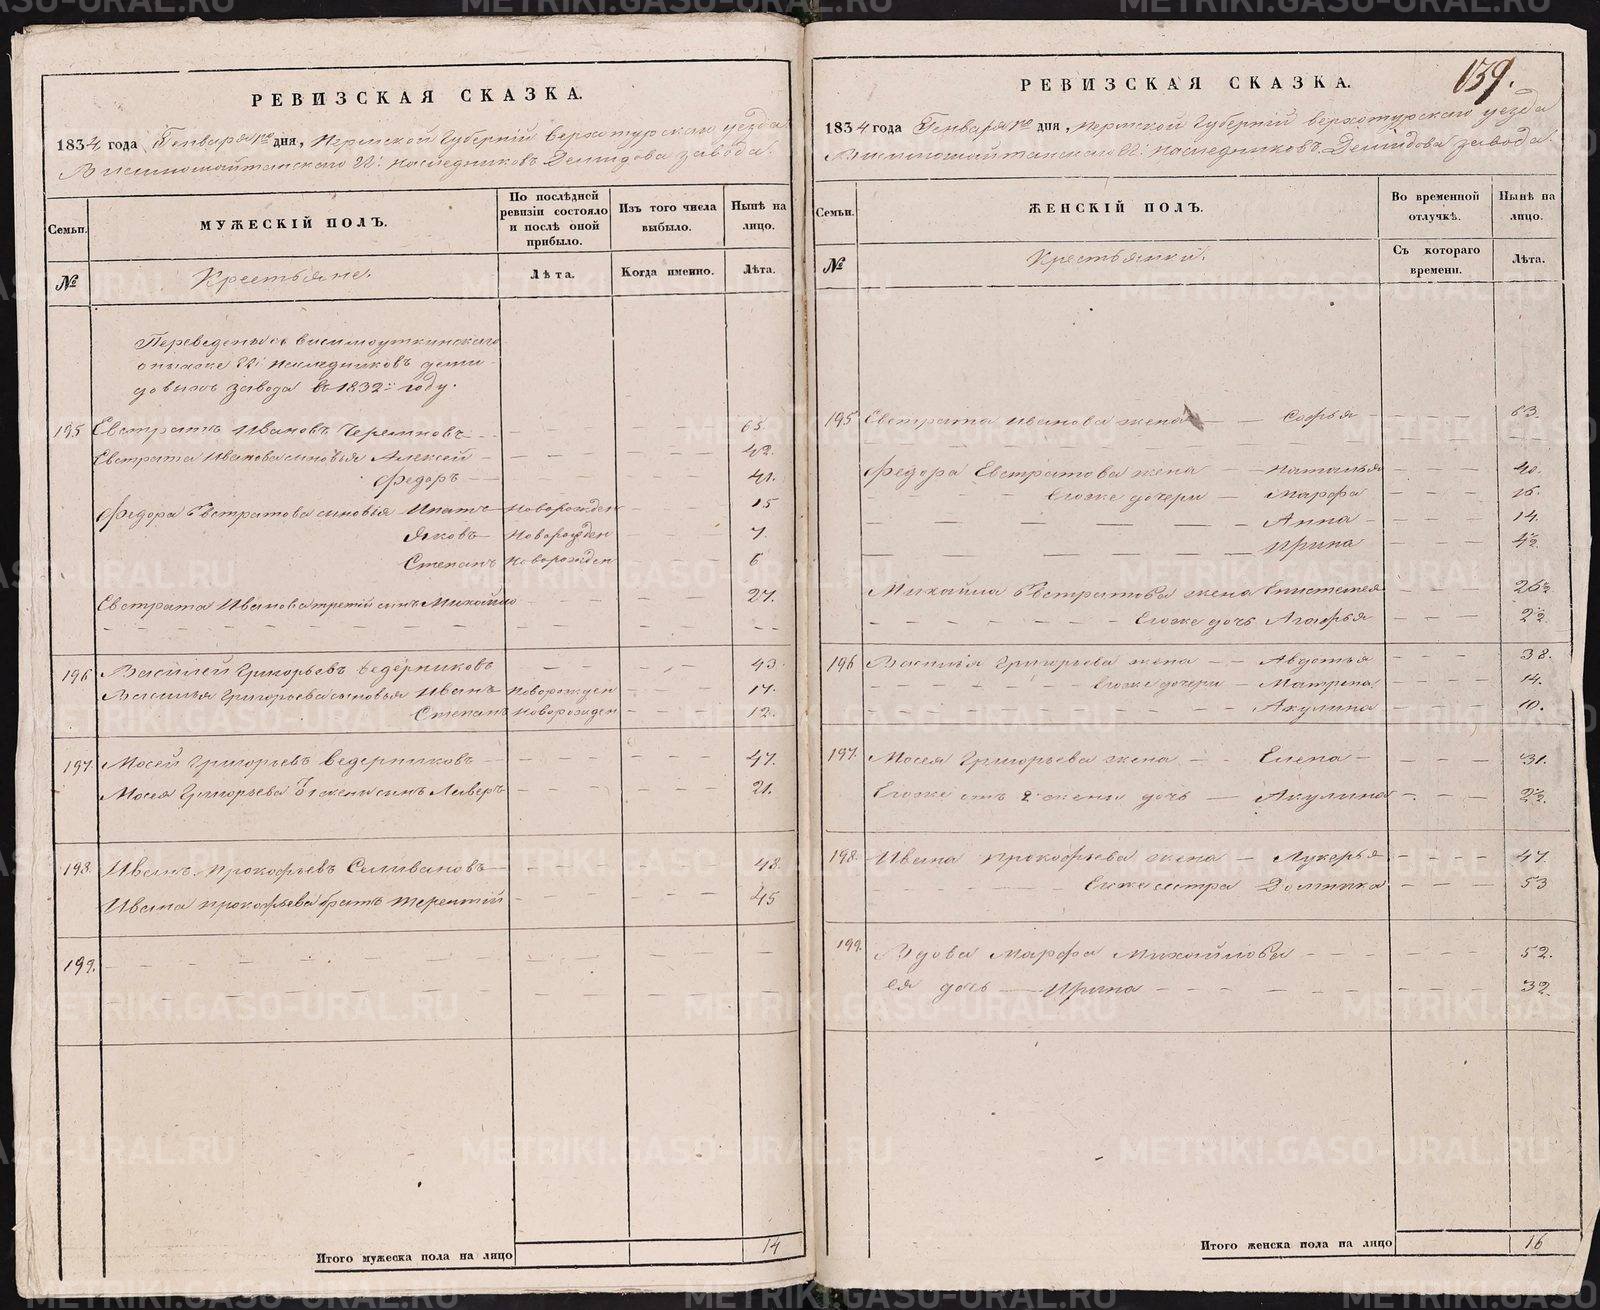 РЕВИЗСКАЯ СКАЗКА.
1834 года Генваря 1го дня, Пермской Губерніи верхотурскаго уезда
Висимошайтанскаго Н: Наследниковъ Демидова завода.
Семьи.
МУЖЕСКІЙ ПОЛЪ.
По послѣдней ревизіи состояло и послѣ оной прибыло.
Изъ того числа выбыло.
Нынѣ на лицо.
№
Крестьяне.
Лѣта.
Когда именно.
Лѣта.
Переведены висимоуткинскаго
Н: Наследниковъ деми
довыхъ завода въ 1832: году.
195 Евстратъ Ивановъ 65.
Евстрата Иванова сыновья Алексей 42.
Федоръ 41.
Федора Евстратова сыновья Ипатъ новорожден 15
Яковъ новорожден 7.
Степанъ новорожден 6
Евстрата Иванова третій сынъ Михайло 27.
196 Василей Григорьевъ ведерниковъ 43.
Василья Григорьева сыновья Иванъ новорожден 17.
Степанъ новорожден 12.
197. Мосей Григорьевъ ведерниковъ 47.
Мосея Григорьева 1 жены сынъ 21.
198. Иванъ Прокофьевъ Селивановъ 48.
Ивана Прокофьева братъ терентій 45
199.
Итого мужеска пола на лицо 14
139.
РЕВИЗСКАЯ СКАЗКА.
1834 года Генваря 1го дня, Пермской Губерніи верхотурскаго уезда
Висимошайтанскаго Н: Наследниковъ Демидова завода.
Семьи.
ЖЕНСКІЙ ПОЛЪ.
Во временной отлучкѣ.
Нынѣ на лицо.
№
Крестьянки.
Съ котораго времени.
Лѣта.
195 Евстрата Иванова жена Софья 63.
Федора Евстратова жена Наталья 40.
Егоже дочери Марфа 16.
Анна 14.
Ирина 4½
Михайла Евстратова жена Епистемея 26½
Егоже дочь Агафья 2½
196 Василья Григорьева жена Авдотья 38.
Егоже дочери Матрена 14.
Акулина 10.
197. Мосея Григорьева жена Елена 31.
Егоже отъ 2 жены дочь Акулина 2½.
198. Ивана Прокофьева жена Лукерья 47.
Егоже сестра Домника 53
199. Вдова Марфа Михайлова 52.
ея дочь Ирина 32.
Итого женска пола на лицо 16
METRIKI.GASO-URAL.RU